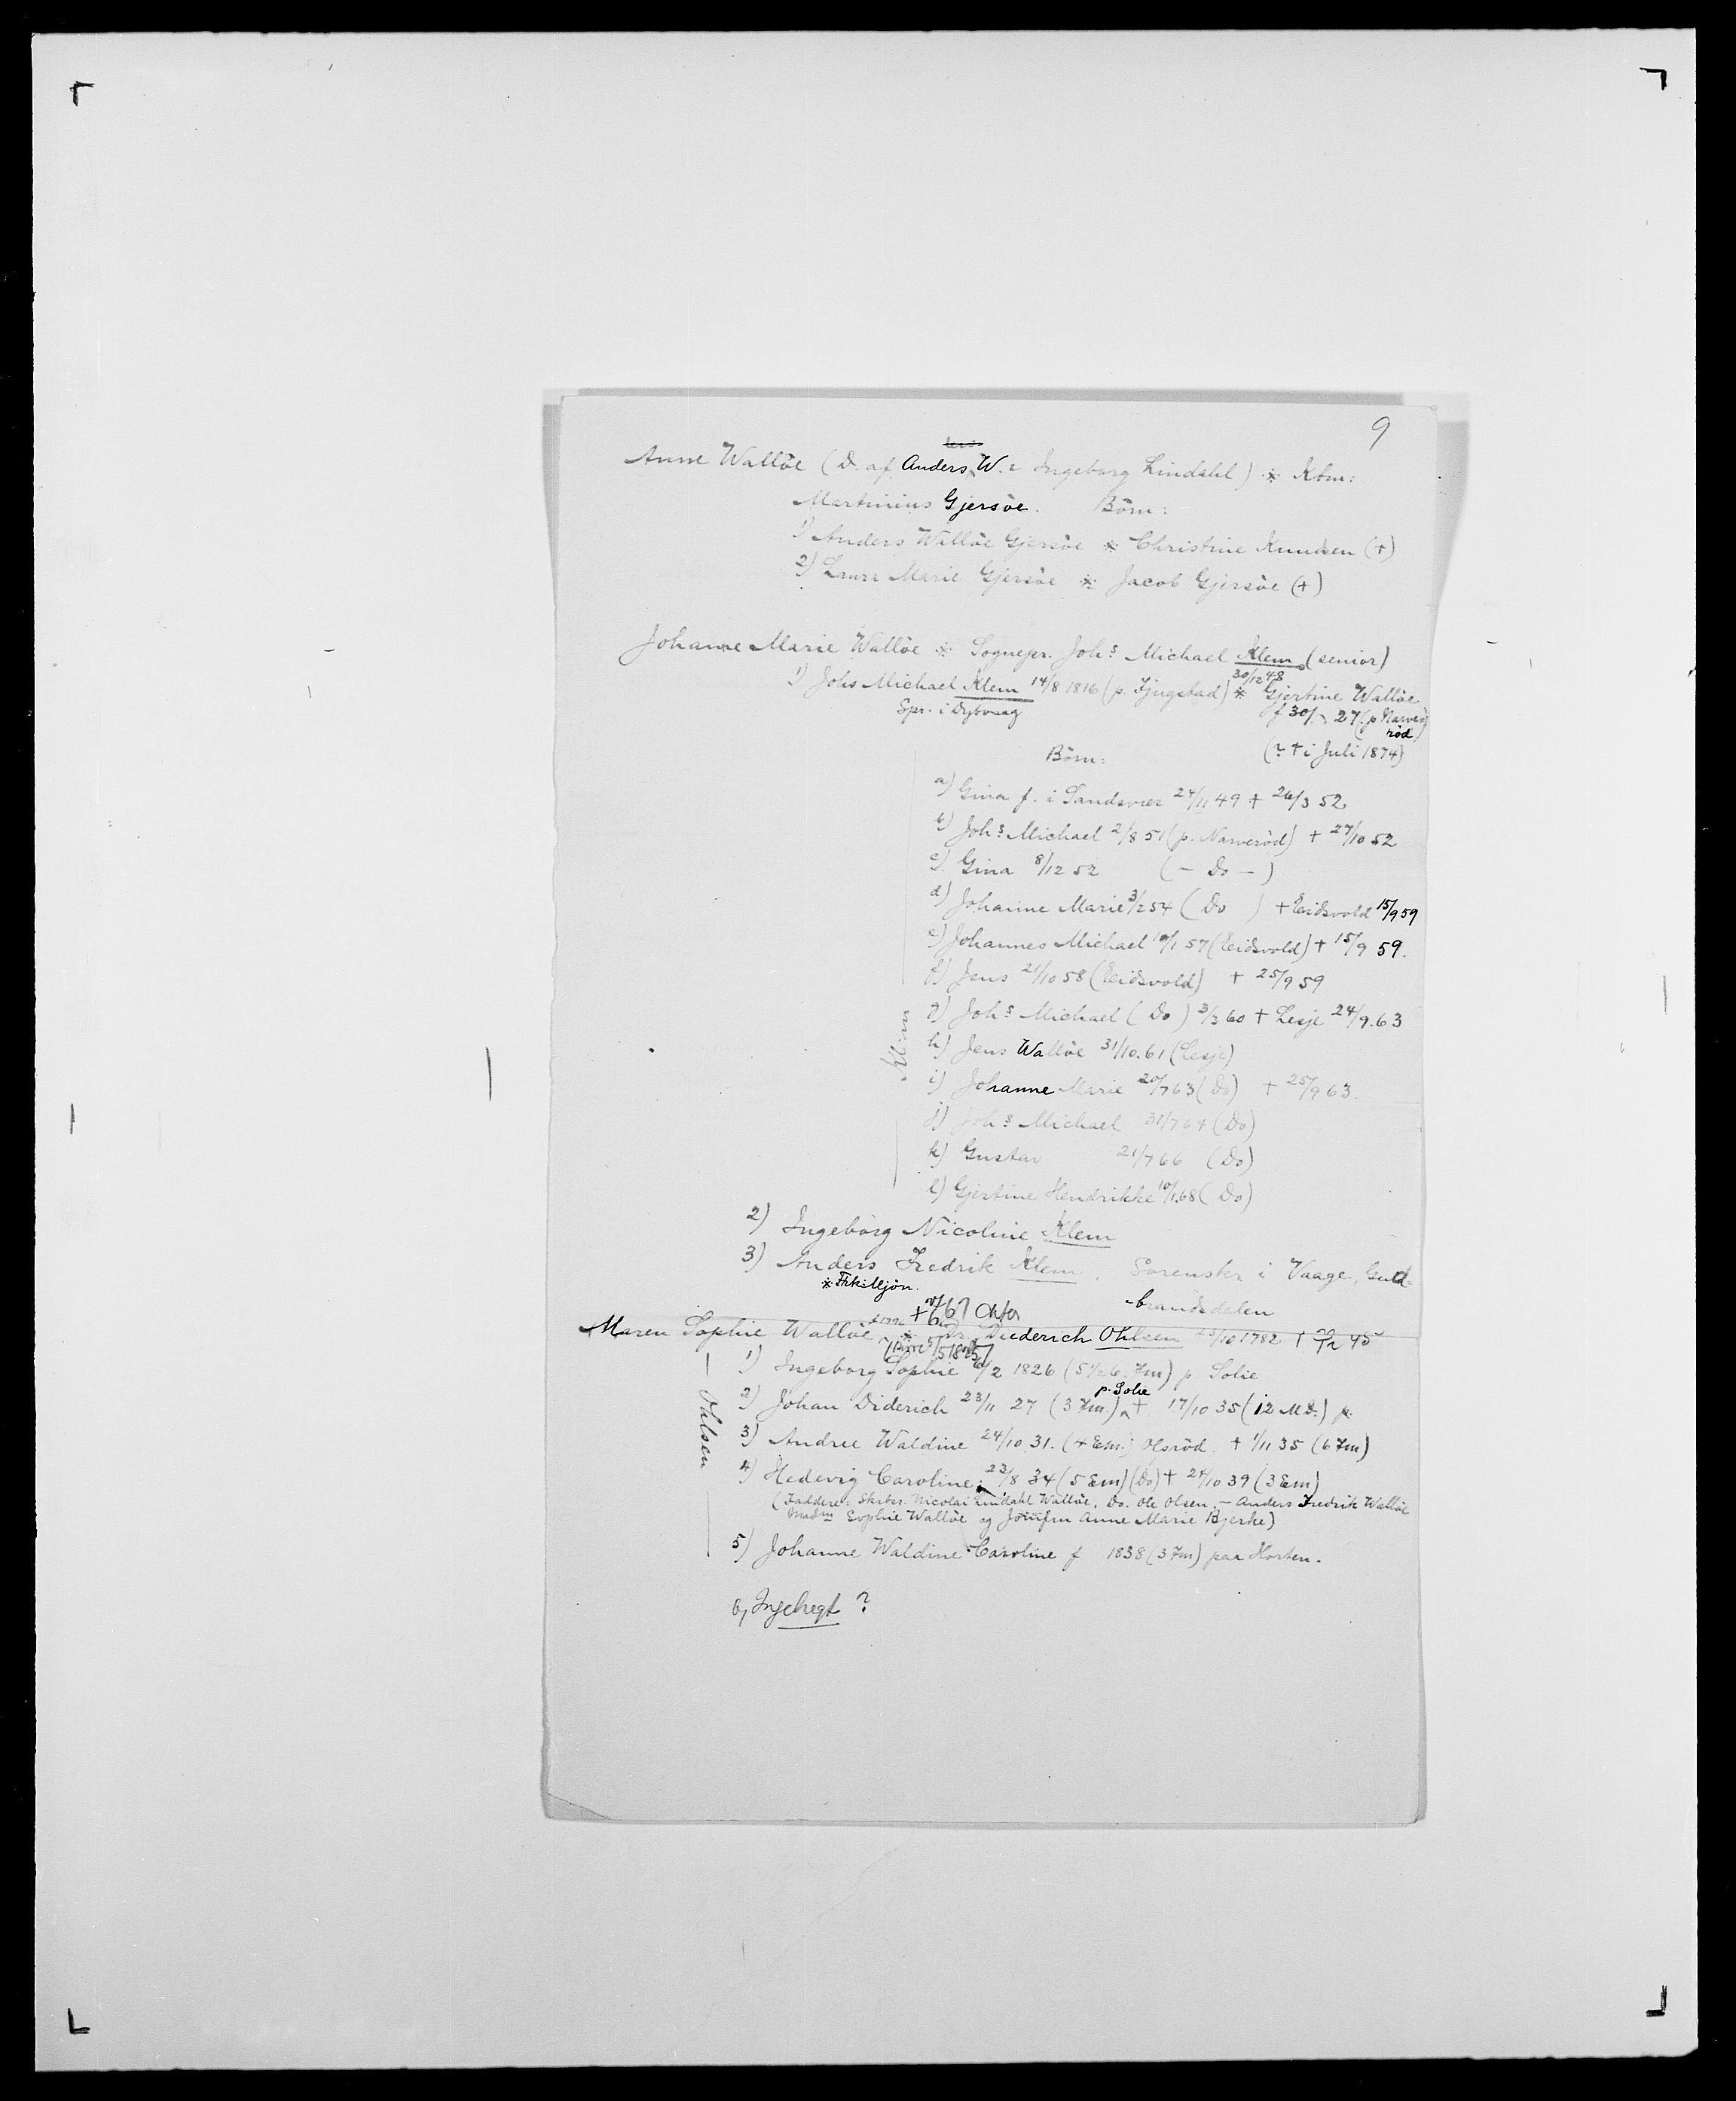 9
Anne Wallöe (D. af Anders W. & Ingeborg Lindahl) * Kbm:
Martinius Gjersöe. Börn:
1) Anders Wallöe Gjersöe * Christine Knudsen (+)
2) Laura Marie Gjersöe * Jacob Gjersöe (+)
Johanne Marie Wallöe * Sognepr. Johs Michael Klem (senior)
30/12 48
1) Johs Michael Klem 14/8 1816 (p. ) * Gjertine Wallöe
Spr. i Dybvaag f 30/ 27 (p Narve
röd)
Börn: (? + i Juli 1874)
a) Gina f. i Sandsvær 24/11 49 + 26/3 52
b) Johs Michael 2/8 51 (p. Narveröd) + 27/10 52
c) Gina 8/12 52 (- Do -)
d) Johanne Marie 3/2 54 (Do) + Eidsvold 15/9 59
e) Johannes Michael 10/1 57 (Eidsvold) + 15/9 59.
f) Jens 21/10 58 (Eidsvold) + 25/9 59
g) Johs Michael (Do) 3/3 60 + Lesje 24/9.63
Klem
h) Jens Wallöe 31/10.61 (Lesje)
i) Johanne Marie 20/7 63 (Do) + 25/9 63.
j) Johs Michael 31/7 64 (Do)
k) Gustav 21/7 66 (Do)
l) Gjertine Hendrikke 10/1.68 (Do)
2) Ingeborg Nicoline Klem
3) Anders Fredrik Klem, Sorenskr i Vaage, Gud-
* Frk. Mjön.
-brandsdalen
Maren Sophie Wallöe * Diederich Ohlsen 23/10 1782 + 45
1) Ingeborg Sophie /2 1826 p. Solie
p. Solie
2) Johan Diderich 23/11 27 (3 7m.) + 17/10 35 (12 M D.) p.
Ohlsen
3) Andree Waldine 24/10 31. (4 Em.) Olsröd. + 1/11 35 (6 7m)
4) Hedevig Caroline 23/8 34 (5 Em) (Do) + 24/10 39 (3 Em)
(Faddere: Skibsr. Nicolai Lindahl Wallöe, Do. Ole Olsen. - Anders Fredrik Wallöe
Madm Sophie Wallöe og Jomfru Anne Marie Bjerke)
5) Johanne Waldine Caroline f 1838 (3 7m) paa Horten.
?